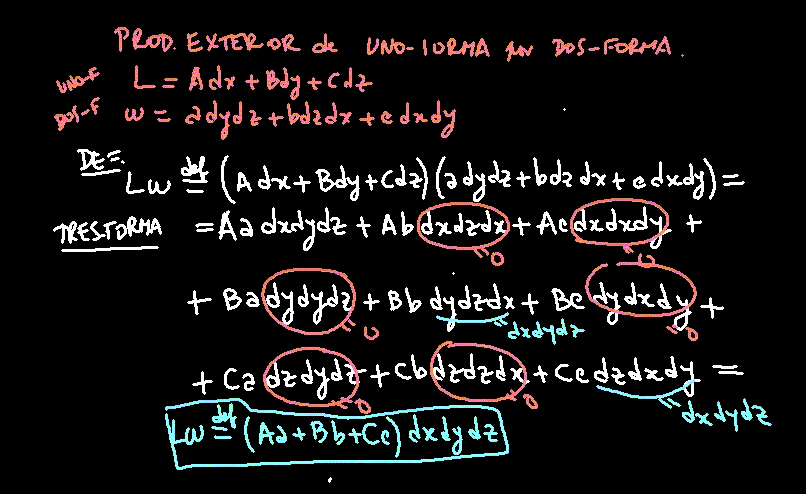 PROD. EXTERIOR de UNO-FORMA por DOS-FORMA.
UNO-F L = Adx + Bdy + Cdz
DOS-F ω = adydz + bdzdx + cdxdy
DEF.
Lω def= (Adx + Bdy + Cdz)(adydz + bdzdx + cdxdy) =
TRES-FORMA = Aa dxdydz + Ab dxdzdx + Ac dxdxdy +
=0 =0
+ Ba dydydz + Bb dydzdx + Bc dydxdy +
=0 = dxdydz =0
+ Ca dzdydz + Cb dzdzdx + Cc dzdxdy =
=0 =0 = dxdydz
Lω def= (Aa + Bb + Cc) dxdydz